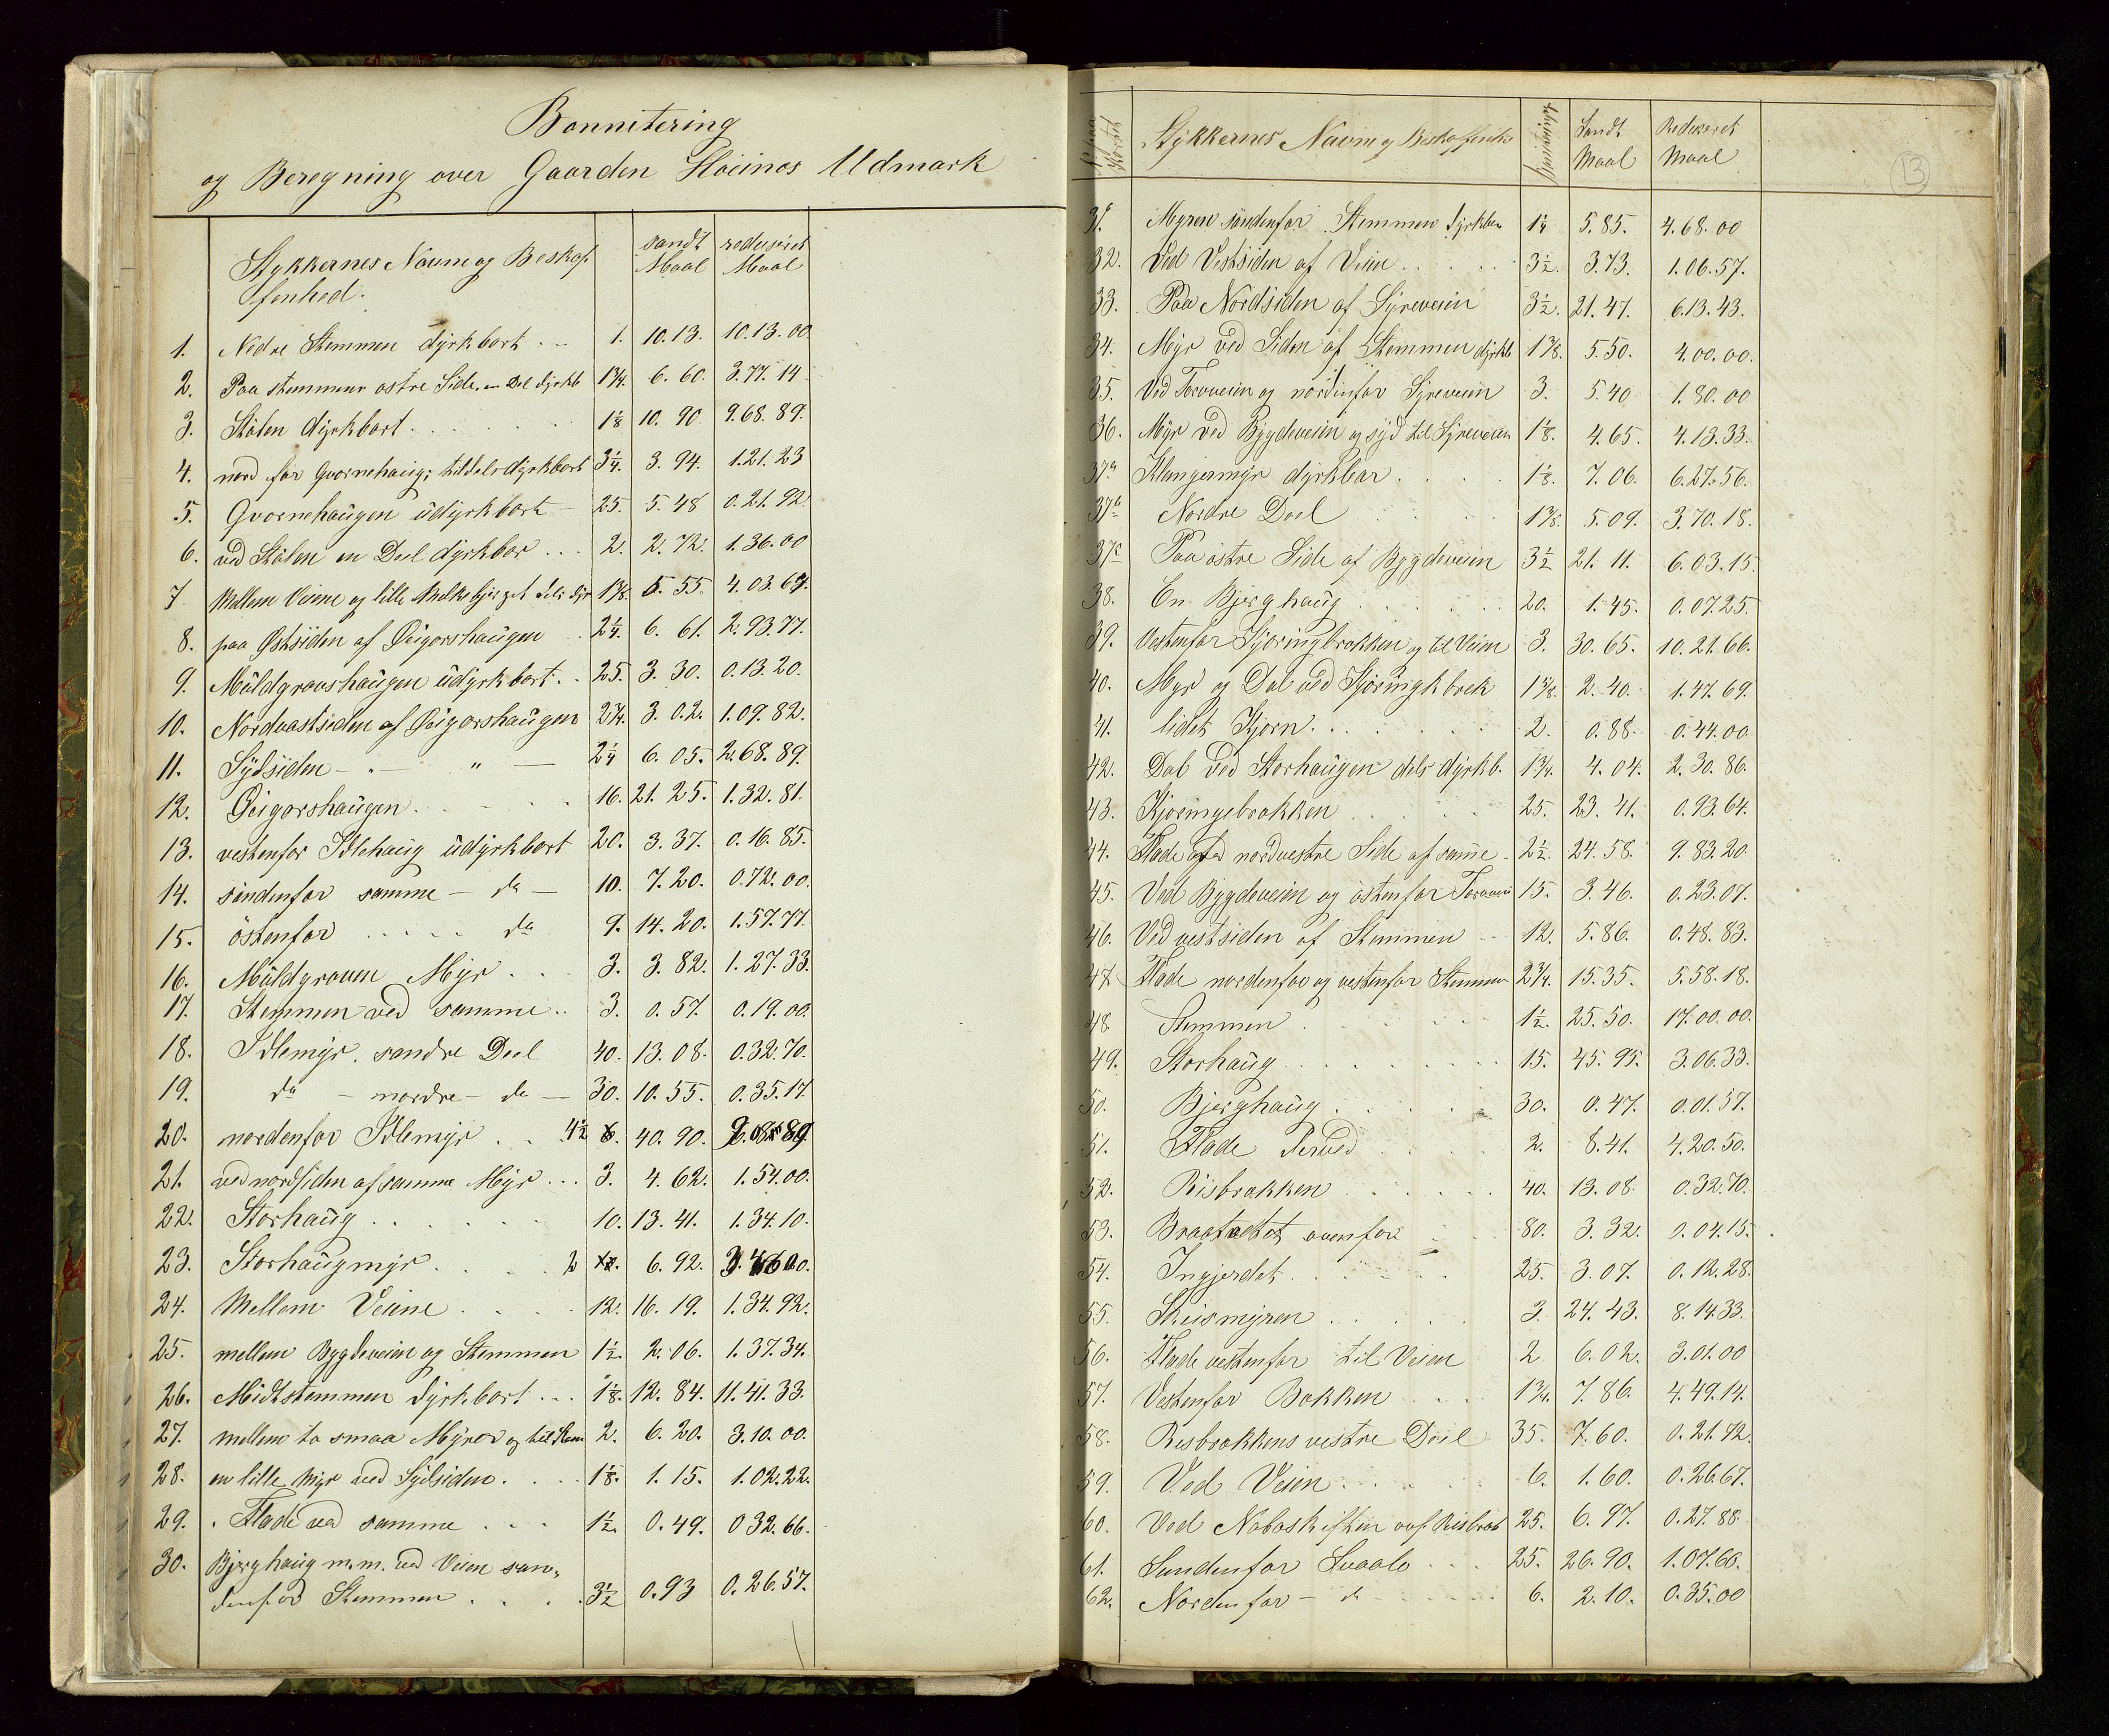 Bonnitering
og Beregning over Gaarden Höines Udmark
Stykkernes Navne og Beskaf- sandt reduseret
fenhed. Maal Maal
1. Nedre Stemmen dyrkbart . . 1. 10.13. 10.13.00
2. Paa stemmens ostre Side, en Del dyrkb 1¾. 6.60. 3.77.14
3. Stölen dyrkbart . . . 1⅛ 10.90 9.68.89.
4. nord for Qvernehaug; tildels dyrkbart 3¼. 3.94. 1.21.23
5. Qvornehaugen üdyrkbart 25. 5.48 0.21.92.
6. ved Stölen en Deel dyrkbar . . . 2. 2.72. 1.36.00
7 Mellem Veiene og lille Melkebjerget dels dyr 1⅜. 5.55. 4.03.64.
8. paa Östsiden af Geigorshaugen . . 2¼. 6.61. 2.93.77.
9. Müldgravshaugen üdyrkbart . . 25. 3.30. 0.13.20.
10. Nordvestsiden af Geigorshaugen 2¾. 3.02. 1.09.82.
11. Sydsiden - " - " - 2¼ 6.05. 2.68.89.
12. Geigorshaugen . . . 16. 21.25. 1.32.81.
13. vestenfor Idlehaug üdyrkbart 20. 3.37. 0.16.85.
14. söndenfor samme - do - 10. 7.20. 0.72.00.
15. östenfor . . . . . do 9. 14.20. 1.57.77.
16. Müldgraven Myr . . . 3. 3.82. 1.27.33.
17. Stemmen ved samme . . 3. 0.57. 0.19.00.
18. Idlemyr. søndre Deel 40. 13.08. 0.32.70.
19. do - nordre - do - 30. 10.55. 0.35.17.
20. nordenfor Idlemyr . . 4½ 40.90. 9.08.89.
21. ved nordsiden af samme Myr . . . 3. 4.62. 1.54.00.
22. Storhaug . . . . . . 10. 13.41. 1.34.10.
23. Storhaugmyr . . . . 2 6.92. 3.46.00.
24. Mellem Veiene . . . . 12. 16.19. 1.34.92.
25. mellem Bygdeveien og Stemmen 1½. 2.06. 1.37.34.
26. Midtstemmen dyrkbart . . . 1⅛. 12.84. 11.41.33.
27. mellem to smaa Myrer og til Stem 2. 6.20. 3.10.00.
28. en lille Myr ved Sydsiden . . . . 1⅛. 1.15. 1.02.22.
29. Flade ved samme . . . 1½. 0.49. 0 32.66.
30. Bjerghaug m.m. ved Veien søn-
denfor Stemmen . . . . 3½ 0.93 0.26.57.
No paa Kortet Stykkernes Navne og Beskaffenhed Sandt Maal Reduseret Maal
13
31. Myren söndenfor Stemmen dyrkbar 1¼ 5.85. 4.68.00
32. Ved Vestsiden af Veien . . . . 3½. 3.73. 1.06.57.
33. Paa Nordsiden af Syreveien 3½. 21.47. 6.13.43.
34. Myr ved Siden af Stemmen dyrkb 1⅜. 5.50. 4.00.00.
35. Ved Torvveien og nordenfor Syreveien 3. 5.40 1.80.00
36. Myr ved Bygdeveien og syd til Syreveien 1⅛. 4.65. 4.13.33.
37a Klungermyr dyrkbar . . . . 1⅛. 7.06. 6.27.56.
37b Nordre Deel 1⅜. 5.09. 3.70.18.
37c Paa östre Side af Bygdeveien 3½ 21.11. 6.03.15.
38. En Bjerghaug . . . . 20. 1.45. 0.07.25.
39. Vestenfor Kjöringbrekken og til Veien 3. 30.65. 10.21.66.
40. Myr og Dal ved Kjöringkbrek 1⅝. 2.40. 1.47.69.
41. lidet Kjern . . . . . . . 2. 0.88. 0.44.00
42. Dal ved Storhaugen dels dyrkb. 1¾. 4.04. 2.30.86.
43. Kjöringebrekken . . . . . 25. 23.41. 0.93.64.
44. Flade ved nordvestre Side af samme . 2½. 24.58. 9.83.20.
45. Ved Bygdeveien og östenfor Torvvei 15. 3.46. 0.23.07.
46. Ved vestsiden af Stemmen - - 12. 5.86. 0.48.83.
47 Flade nordenfor og vestenfor Stemmen 2¾. 15.35. 5.58.18.
48. Stemmen . . . . . . 1½. 25.50. 17.00.00.
49. Storhaug . . . . . . . 15. 45.95. 3.06.33.
50. Bjerghaug . . . . . 30. 0.47. 0.01.57.
51. Flade derved . . . . 2. 8.41. 4.20.50.
52. Risbrekken . . . . . . 40. 13.08. 0.32.70.
53. Braatvedtet ovenfor . . 80. 3.32. 0.04.15.
54. Ingjerdet . . . . . . 25. 3.07. 0.12.28.
55. Skeismyren . . . . . 3. 24.43. 8.14.33.
56. Flade vestenfor til Veien 2 6.02. 3.01.00
57. Vestenfor Bakken . . . 1¾. 7.86. 4.49.14.
58. Risbrekkens vestre Deel 35. 7.60. 0.21.72.
59. Ved Veien . . . . . . 6. 1.60. 0.26.67.
60. Ved Naboskiftet Risbrek 25. 6.97. 0.27.88.
61. Søndenfor Svaale . . . 25. 26.90. 1.07.60.
62. Nordenfor - do - - - - 6. 2.10. 0.35.00